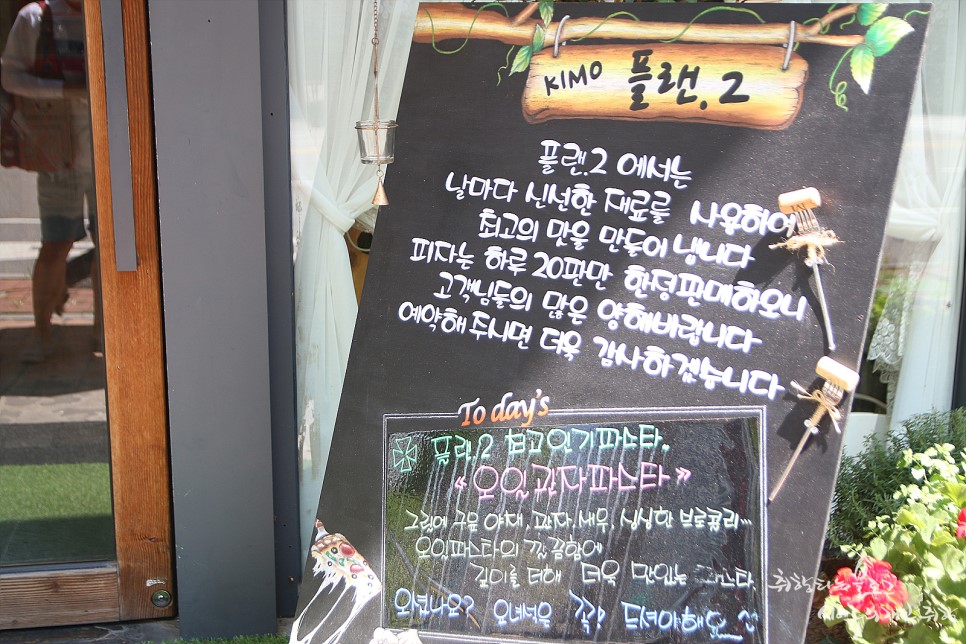 KIMO 플랜.2
플랜.2 에서는
날마다 신선한 재료를 사용하여
최고의 맛을 만들어 냅니다
피자는 하루 20판만 한정판매하오니
고객님들의 많은 양해바랍니다
예약해주시면 더욱 감사하겠습니다
Today's
플랜.2 최고인기파스타.
"오일관자파스타"
그릴에 구운 야채, 관자, 새우, 싱싱한 브로콜리...
오일파스타의 깔끔함에
깊이를 더해 더욱 맛있는 파스타.
꼭! 드셔야해요